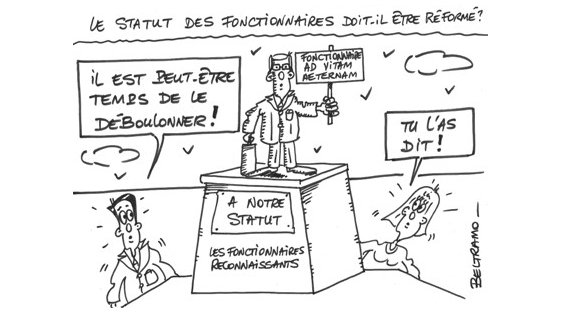 LE STATUT DES FONCTIONNAIRES DOIT-IL ÊTRE RÉFORMÉ?
FONCTIONNAIRE
AD VITAM
AETERNAM
IL EST PEUT-ÊTRE
TEMPS DE LE
DÉBOULONNER!
TU L'AS
DIT!
A NOTRE
STATUT
LES FONCTIONNAIRES
RECONNAISSANTS
BELTRAMO